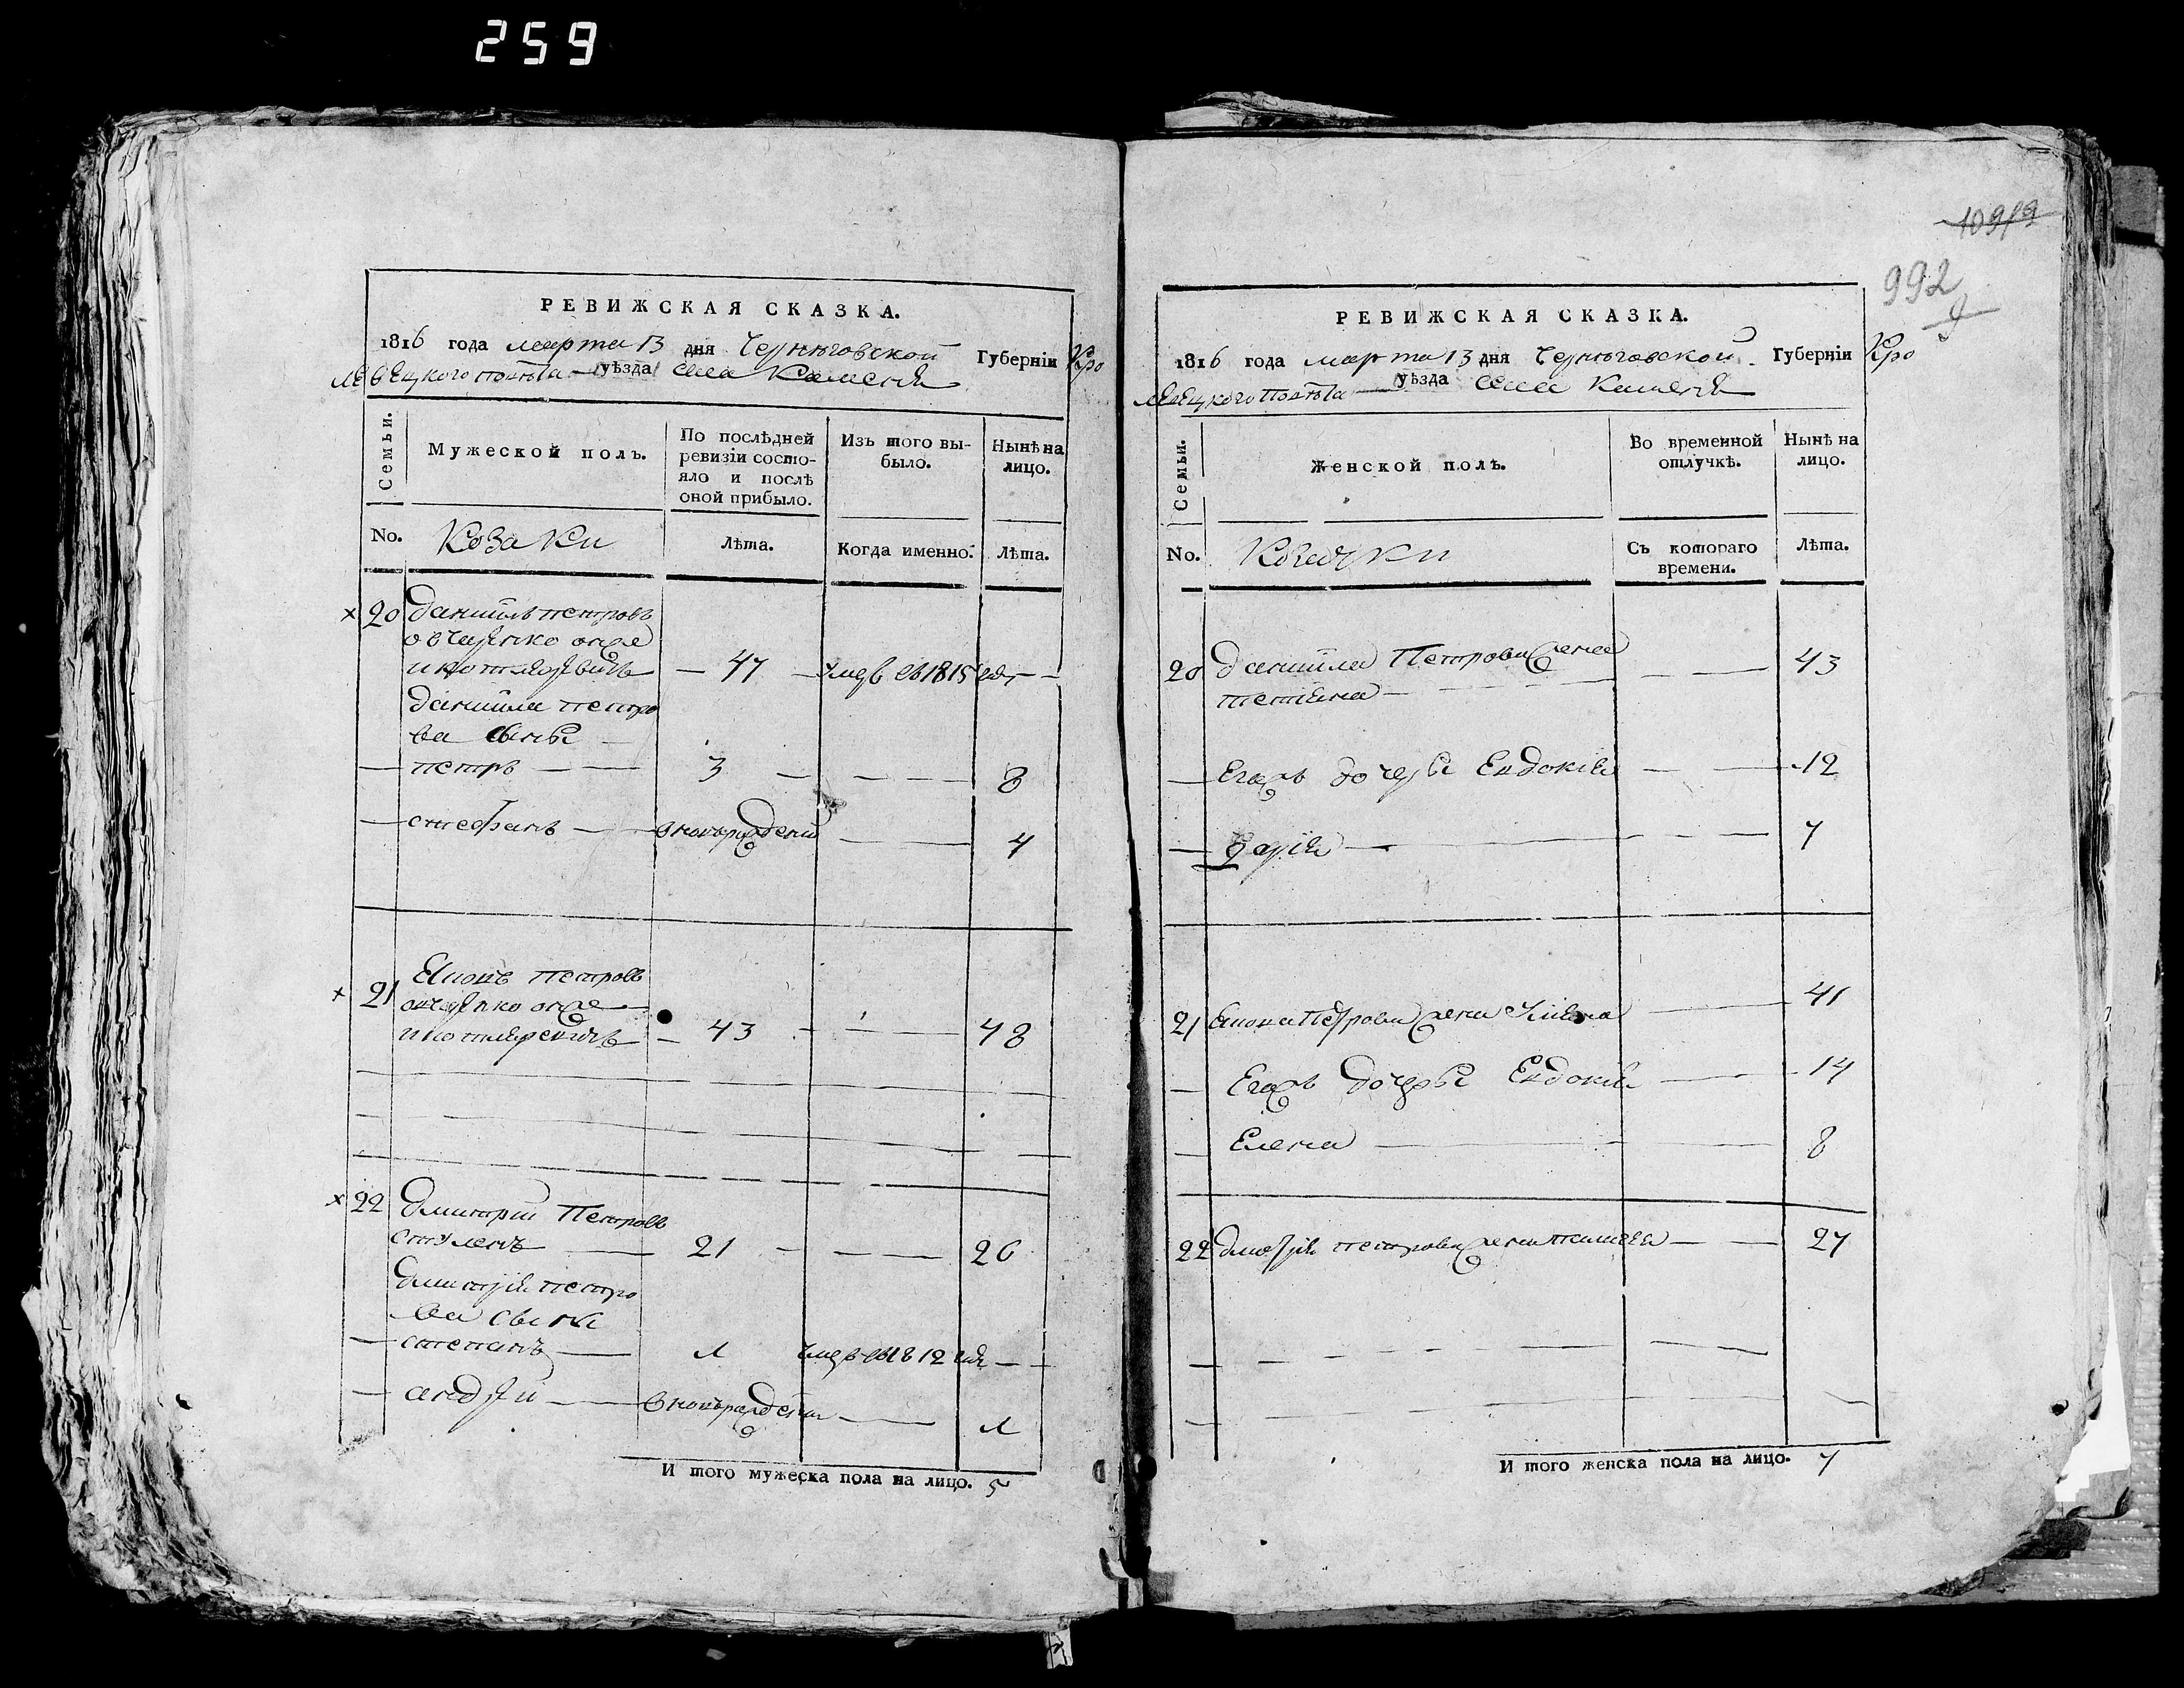 259
РЕВИЖСКАЯ СКАЗКА.
1816 года марта 13 дня Черниговской Губерніи Кро
левецкого повѣта уѣзда села Каменя
Семьи.
Мужеской полъ.
По послѣдней
ревизіи состо-
яло и послѣ
оной прибыло.
Изъ того вы-
было.
Нынѣ на
лицо.
No.
Козаки
Лѣта.
Когда именно.
Лѣта.
х 20 Даниилъ петровъ
овчаренко онже
47 умер въ 1815 год
Даниила петро
ва сыны
петръ 3 8
стефанъ вновьрожденъ 4
х 21 петровъ
онже
43 48
х 22 Дмитрий Петровъ
21 26
Дмитрія петро
ва сыны
степанъ 1 умеръ въ 1812 год
андрей вновьрожденъ 1
И того мужеска пола на лицо. 5
1099
992
РЕВИЖСКАЯ СКАЗКА.
1816 года марта 13 дня Черниговской Губерніи Кро
левецкого повѣта уѣзда села Каменя
Семьи.
Женской полъ.
Во временной
отлучкѣ.
Нынѣ на
лицо.
No.
Козачки
Съ котораго
времени.
Лѣта.
20 Даниила Петрова жена 43
тетіяна
Егожъ дочеры Евдокія 12
Дарія 7
21 Петрова жена 41
Егожъ дочеры Евдокія 14
Елена 8
22 Дмитрія петрова жена 27
И того женска пола на лицо. 7